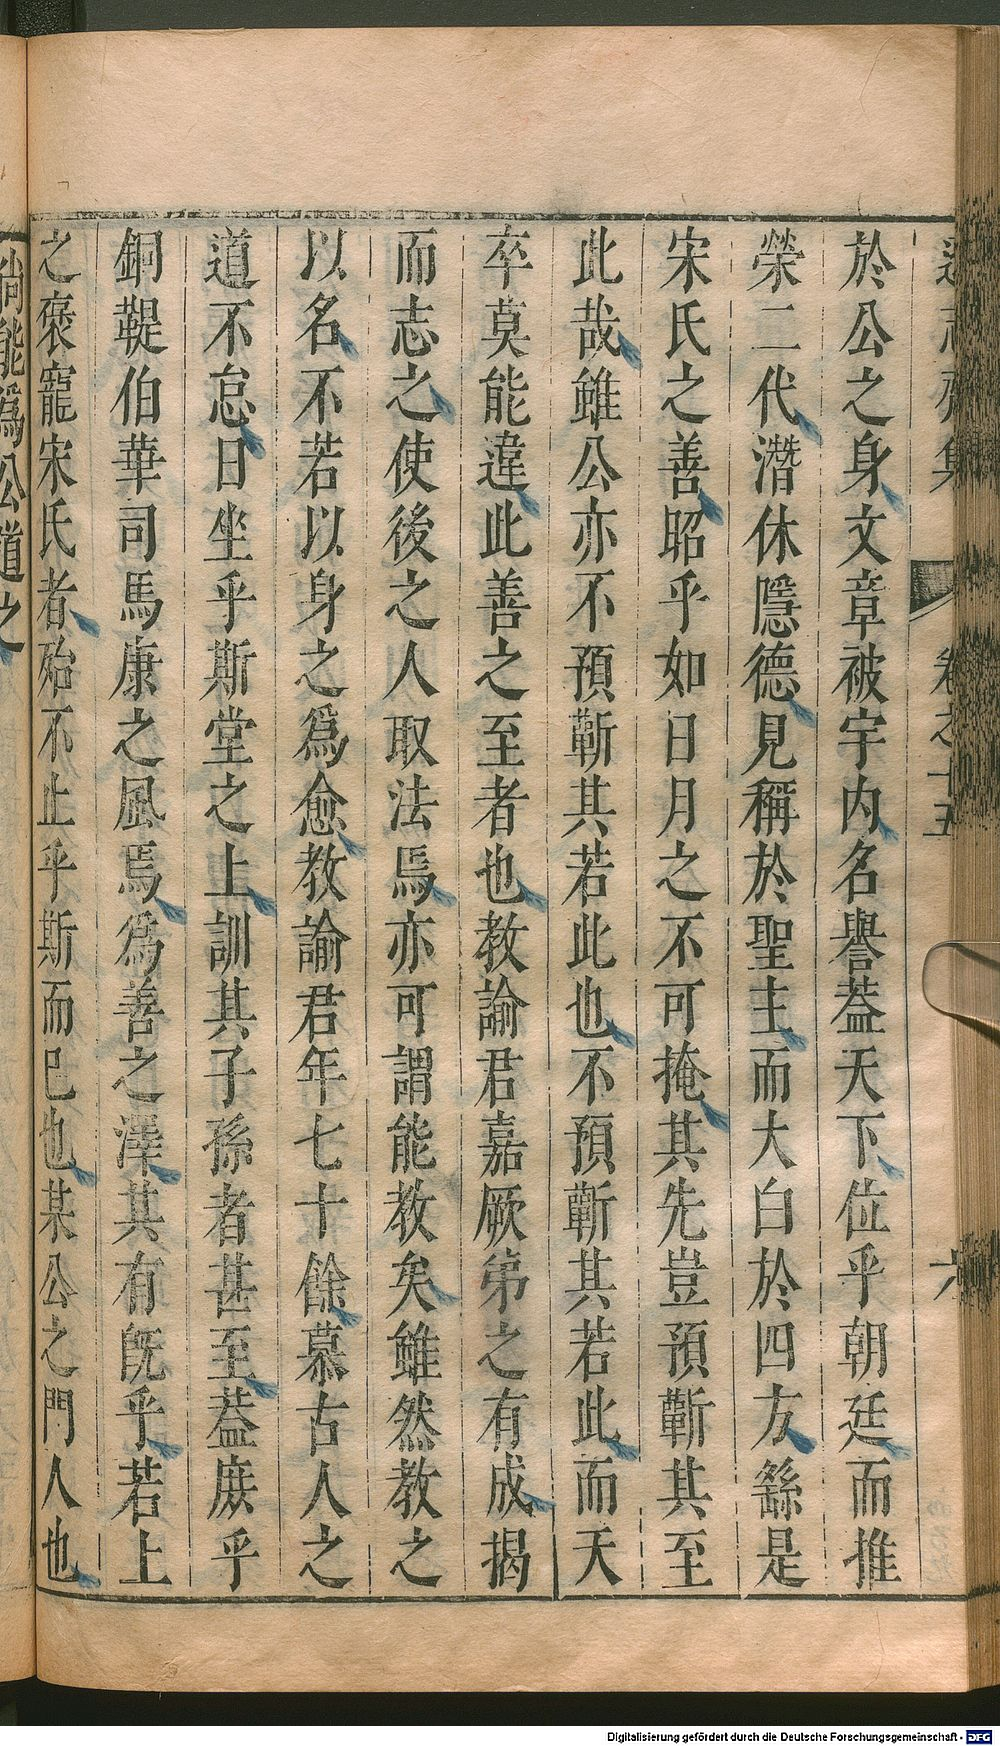 遜志齋集 卷之十五 六
於公之身文章被宇內名譽葢天下位乎朝廷而推
榮二代潛休隱德見稱於聖主而大白於四方繇是
宋氏之善昭乎如日月之不可掩其先豈預蘄其至
此哉雖公亦不預蘄其若此也不預蘄其若此而天
卒莫能違此善之至者也教諭君嘉厥弟之有成揭
而志之使後之人取法焉亦可謂能教矣雖然教之
以名不若以身之爲愈教諭君年七十餘慕古人之
道不怠日坐乎斯堂之上訓其子孫者甚至葢庶乎
銅鞮伯華司馬康之風焉爲善之澤其有旣乎若上
之褒寵宋氏者殆不止乎斯而已也某公之門人也
尚能爲公道之
Digitalisierung gefördert durch die Deutsche Forschungsgemeinschaft - DFG